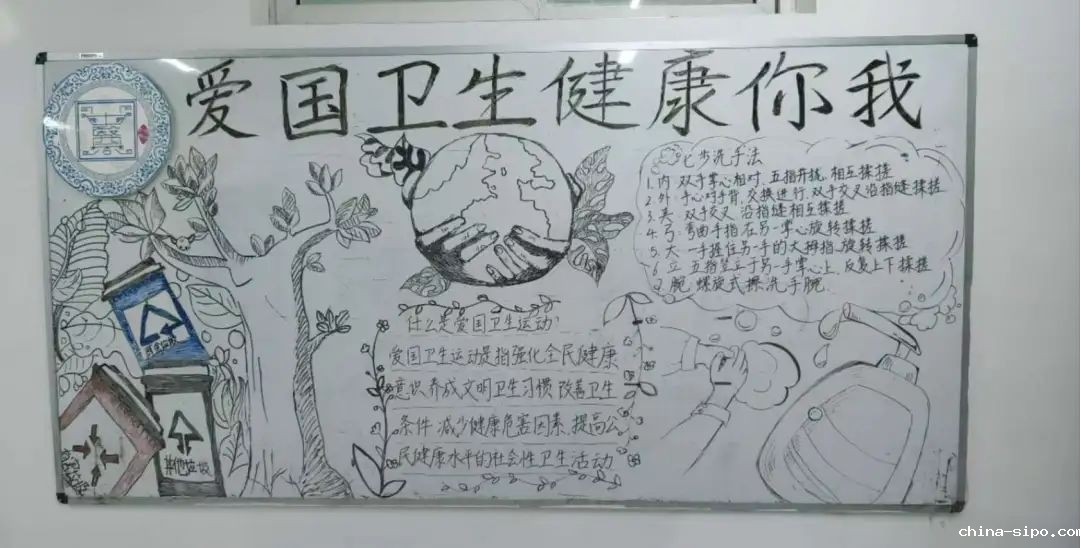 爱国卫生健康你我
七步洗手法
1.内 双手掌心相对,五指并拢,相互揉搓
2.外 手心对手背,交换进行,双手交叉沿指缝揉搓
3.夹 双手交叉 沿指缝相互揉搓
4.弓 弯曲手指在另一掌心旋转揉搓
5.大 一手握住另一手的大拇指,旋转揉搓
6.立 五指竖立于另一手掌心上,反复上下揉搓
7.腕 螺旋式擦洗手腕
什么是爱国卫生运动?
爱国卫生运动是指强化全民健康
意识 养成文明卫生习惯 改善卫生
条件 减少健康危害因素、提高公
民健康水平的社会性卫生活动
其他垃圾
china-sipo.com